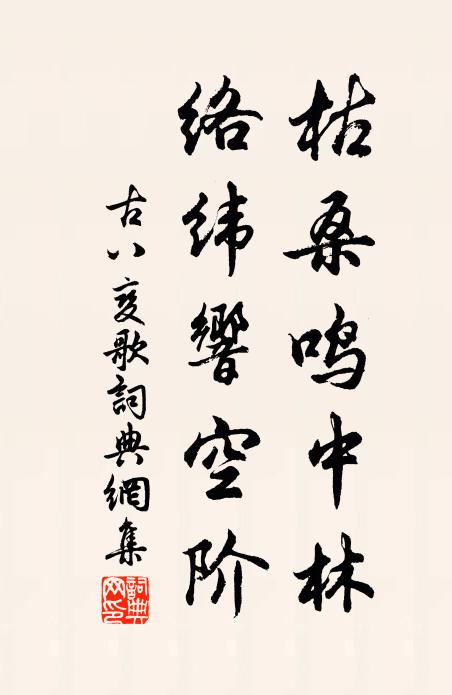 枯桑鸣中林
络纬響空阶
古八变歌詞典網集
詞典网印